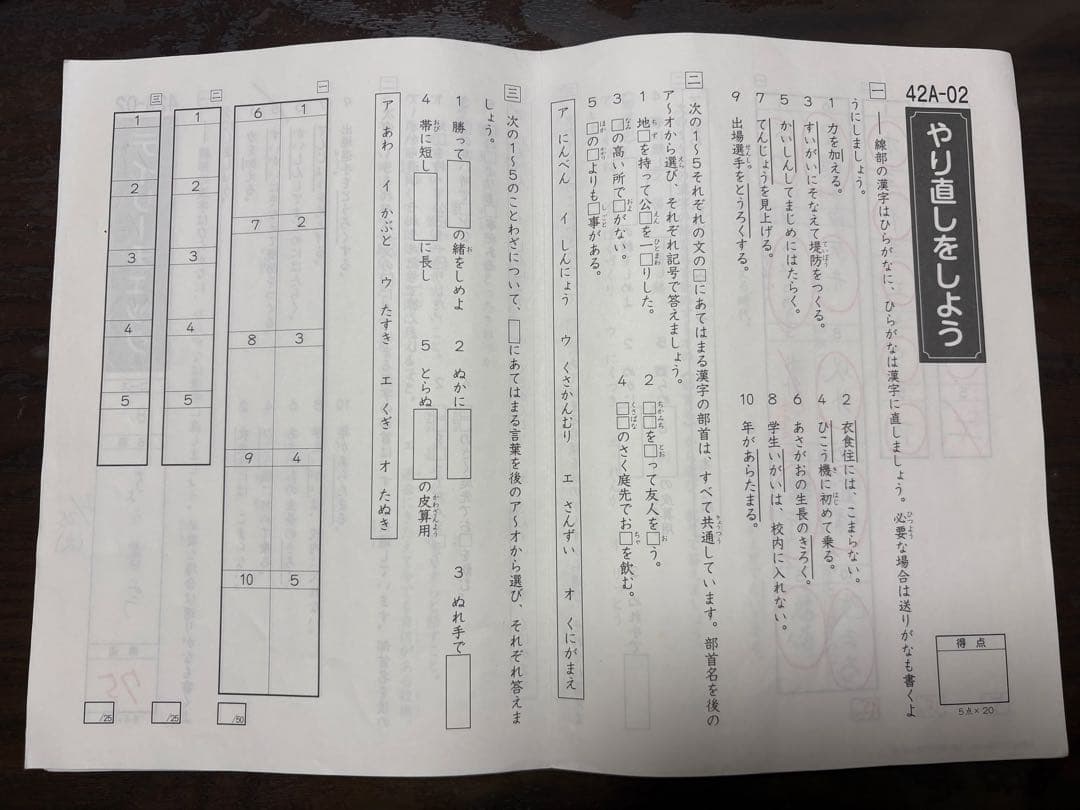 42A-02
やり直しをしよう
得点
5点×20
一 ――線部の漢字はひらがなに、ひらがなは漢字に直しましょう。必要な場合は送りがなも書くよ
うにしましょう。
1 力を加える。
2 衣食住には、こまらない。
3 すいがいにそなえて堤防をつくる。
4 ひこう機に初めて乗る。
5 かいしんしてまじめにはたらく。
6 あさがおの生長のきろく。
7 てんじょうを見上げる。
8 学生いがいは、校内に入れない。
9 出場選手をとうろくする。
10 年があらたまる。
二 次の1〜5それぞれの文の□にあてはまる漢字の部首は、すべて共通しています。部首名を後の
ア〜オから選び、それぞれ記号で答えましょう。
1 地□を持って公□を一□りした。
2 □□を□って友人を□う。
3 □の高い所で□がない。
4 □□のさく庭先でお□を飲む。
5 □の□よりも□事がある。
ア にんべん イ しんにょう ウ くさかんむり エ さんずい オ くにがまえ
三 次の1〜5のことわざについて、□にあてはまる言葉を後のア〜オから選び、それぞれ答えま
しょう。
1 勝って□の緒をしめよ
2 ぬかに□
3 ぬれ手で□
4 帯に短し□に長し
5 とらぬ□の皮算用
ア あわ イ かぶと ウ たすき エ くぎ オ たぬき
一
1
2
3
4
5
6
7
8
9
10
/50
二
1
2
3
4
5
/25
三
1
2
3
4
5
/25